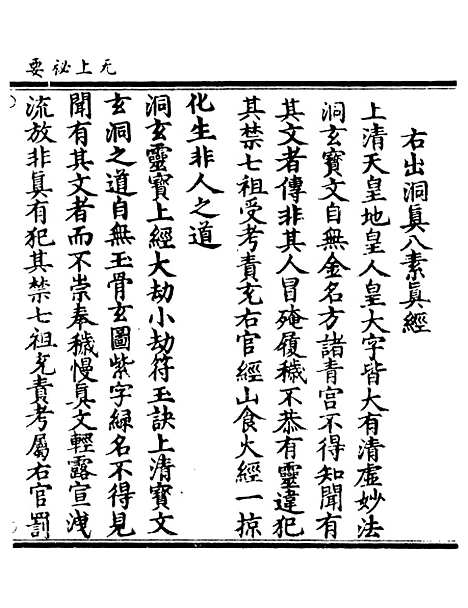 无上祕要
右出洞真八素真經
上清天皇地皇人皇大字皆大有清虛妙法
洞玄寶文自無金名方諸青宮不得知聞有
其文者傳非其人冒殗履穢不恭有靈違犯
其禁七祖受考責充右官經山食火經一掠
化生非人之道
洞玄靈寶上經大劫小劫符玉訣上清寶文
玄洞之道自無玉骨玄圖紫字綠名不得見
聞有其文者而不崇奉穢慢真文輕露宣洩
流放非真有犯其禁七祖充責考屬右官罰